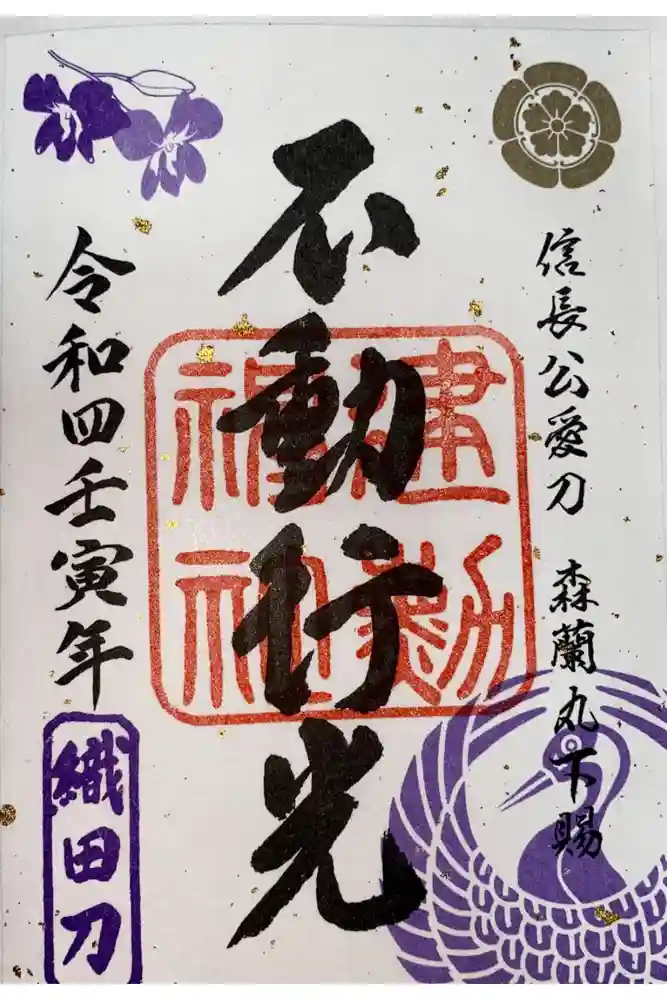 信長公愛刀　森蘭丸下賜
不動行光
建勲神社
令和四壬寅年
織田刀